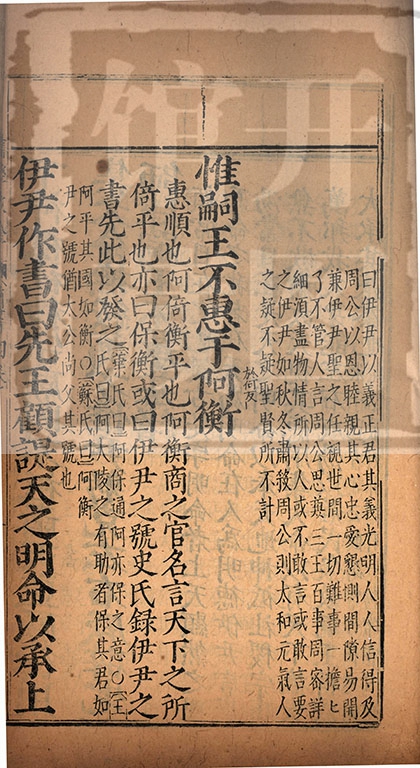 曰伊尹以義正君其義光明人人信得及
周公以恩睦親其心忠愛懇惻間隙易開
兼伊尹聖之任視世間一切難事一擔匕
了不管人言周公思兼三王百事周密詳
細須盡物情所以人或不敢言或敢言要
之伊尹如秋冬肅殺周公則太和元氣人
之疑不疑聖賢所不計
惟嗣王不惠于阿衡
惠順也阿倚衡平也阿衡商之官名言天下之所
倚平也亦曰保衡或曰伊尹之號史氏録伊尹之
書先此以發之葉氏曰阿保通阿亦保之意○王
氏曰阿大陵之有助者保其君如
阿平其國如衡○蘇氏曰阿衡
尹之號猶大公尚父其號也
伊尹作書曰先王顧諟天之明命以承上